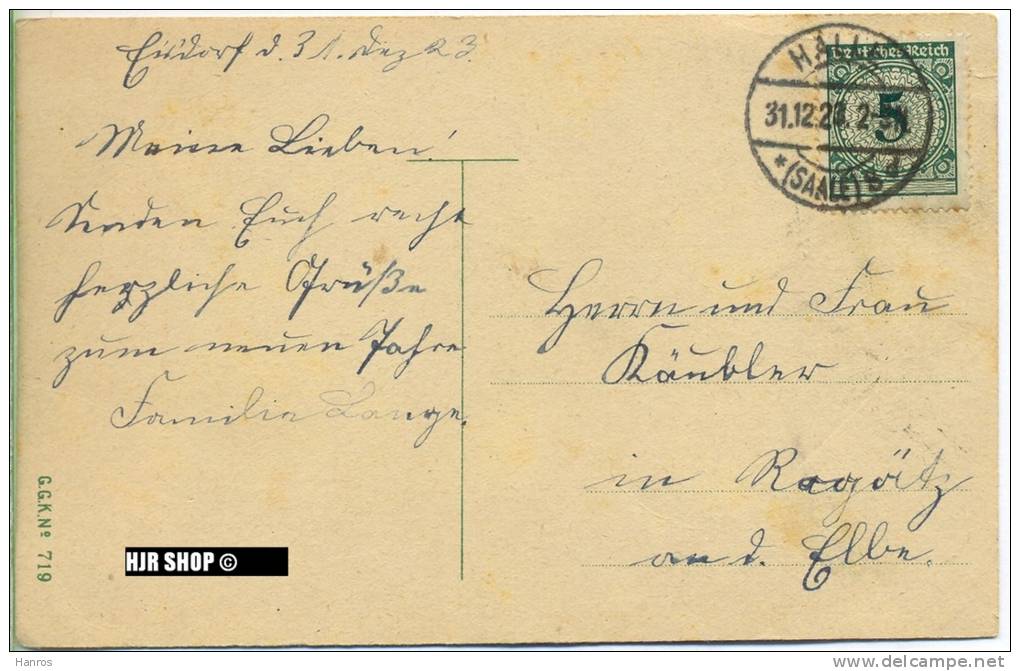 Eisdorf d. 31. Dez 23.
Meine Lieben!
Senden Euch recht
herzliche Grüße
zum neuen Jahre
Familie Lange.
G.G.K.Nº 719
HJR SHOP ©
HALLE
31.12.23 2-3N
*(SAALE) 8 d
Deutsches Reich
5
Herrn und Frau
Käubler
in Rogätz
an d. Elbe.
Hanros
delcampe.net